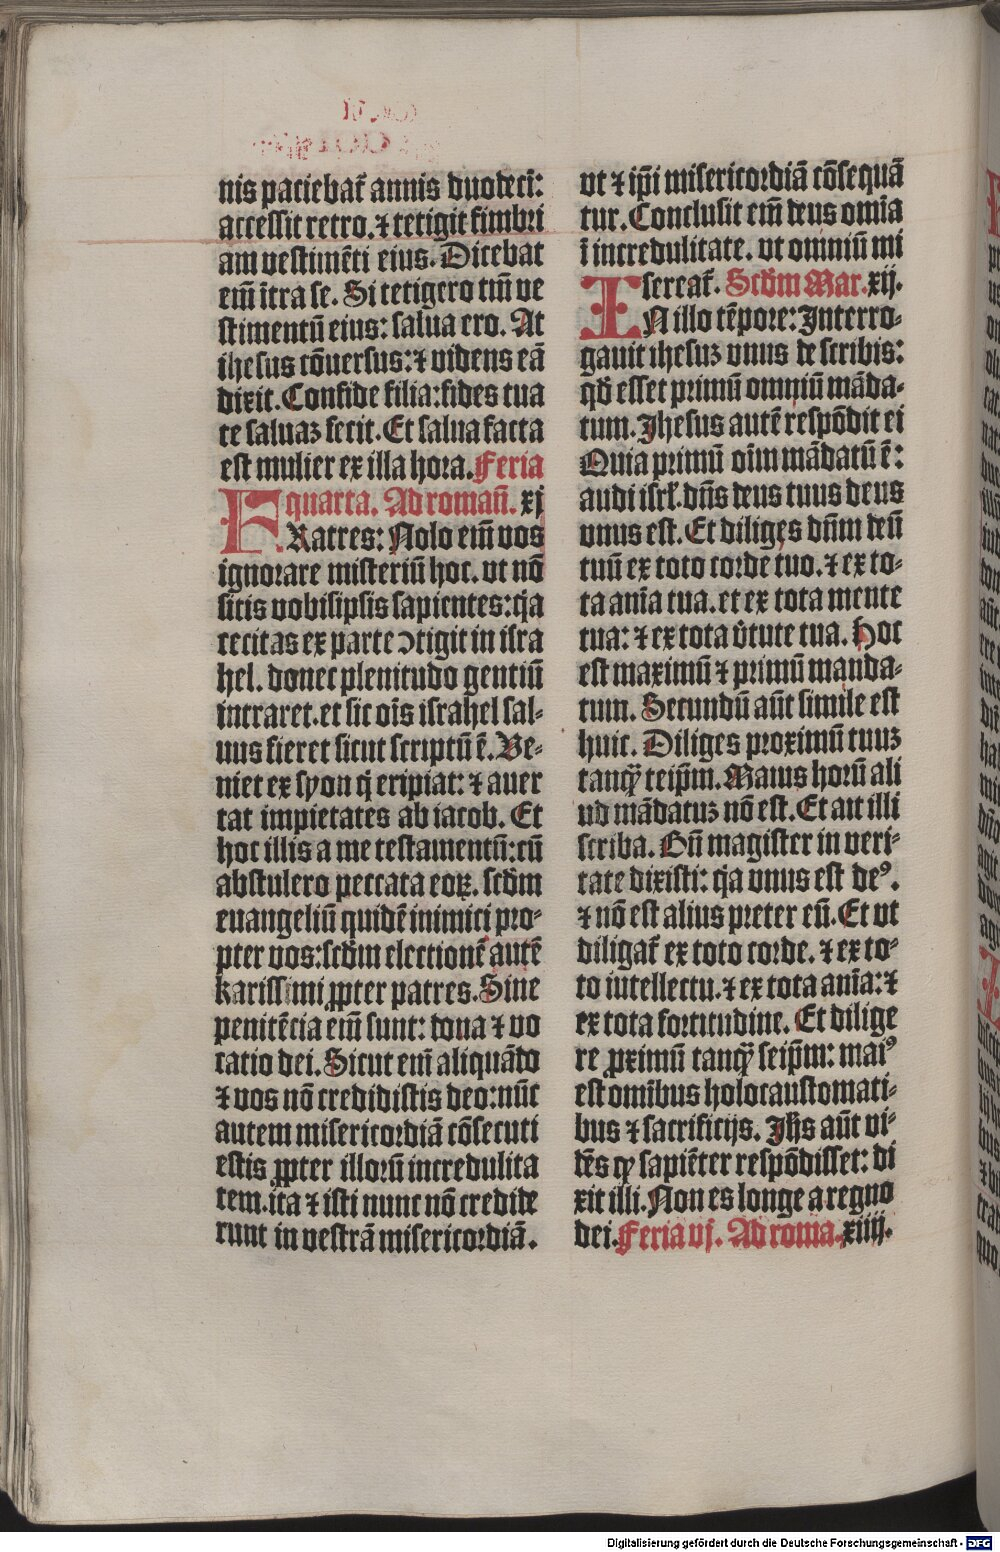 nis paciebat᷑ annis duodecī:
accessit retro. ⁊ tetigit fimbri
am vestimēti eius. Dicebat
em̄ ītra se. Si tetigero tm̄ ve
stimentū eius: salua ero. At
ihesus cōuersus: ⁊ videns eā
dixit. Confide filia: fides tua
te saluaꝫ fecit. Et salua facta
est mulier ex illa hora. Feria
quarta. Ad roman̄. xj
FRatres: Nolo em̄ vos
ignorare misteriū hoc. vt nō
sitis vobisipsis sapientes: q̇a
cecitas ex parte ↄtigit in isra
hel. donec plenitudo gentiū
intraret. et sic oīs israhel sal⸗
uus fieret sicut scriptū ē. Ve⸗
niet ex syon q̇ eripiat: ⁊ auer
tat impietates ab iacob. Et
hoc illis a me testamentū: cū
abstulero peccata eoꝝ. scd̄m
euangeliū quidē inimici pro⸗
pter vos: scd̄m electionē autē
karissimi ꝓpter patres. Sine
penitēcia em̄ sunt: dona ⁊ vo
catio dei. Sicut em̄ aliquādo
⁊ vos nō credidistis deo: nūc
autem misericordiā cōsecuti
estis ꝓpter illorū incredulita
tem. ita ⁊ isti nunc nō credide
runt in vestrā misericordiā.
vt ⁊ ip̄i misericordiā cōsequā
tur. Conclusit em̄ deus omīa
ī incredulitate. vt omniū mi
sereat᷑. Scd̄m Mar. xij.
IN illo tēpore: Interro⸗
gauit ihesuꝫ vnus de scribis:
qd̄ esset primū omniū māda⸗
tum. Jhesus autē respōdit ei
Quia primū oīm mādatū ē:
audi isrl̄. dn̄s deus tuus deus
vnus est. Et diliges dn̄m deū
tuū ex toto corde tuo. ⁊ ex to⸗
ta anīa tua. et ex tota mente
tua: ⁊ ex tota v̄tute tua. Hoc
est maximū ⁊ primū manda⸗
tum. Secundū aūt simile est
huic. Diliges proximū tuuꝫ
tanqꝫ teip̄m. Maius horū ali
ud mādatuꝫ nō est. Et ait illi
scriba. Bn̄ magister in veri⸗
tate dixisti: q̇a vnus est deꝰ.
⁊ nō est alius preter eū. Et vt
diligat᷑ ex toto corde. ⁊ ex to⸗
to intellectu. ⁊ ex tota anīa: ⁊
ex tota fortitudine. Et dilige
re ꝓximū tanqꝫ seip̄m: maiꝰ
est omībus holocaustomati⸗
bus ⁊ sacrificijs. Jh̄s aūt vi⸗
dēs qꝫ sapiēter respōdisset: di
xit illi. Non es longe a regno
dei. Feria vj. Ad roma. xiiij.
Digitalisierung gefördert durch die Deutsche Forschungsgemeinschaft - DFG